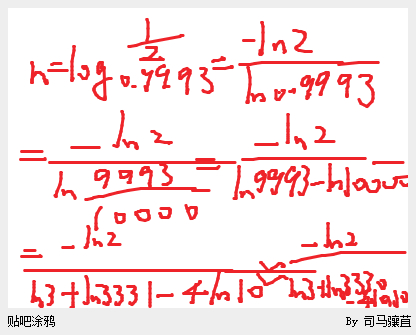 n=log_{0.9993}^{\frac{1}{2}} = \frac{-ln2}{ln0.9993}
= \frac{-ln2}{ln\frac{9993}{10000}} = \frac{-ln2}{ln9993-ln10000}
= \frac{-ln2}{ln3+ln3331-4ln10} ≈ \frac{-ln2}{ln3+ln3330-4ln10}
贴吧涂鸦 By 司马骧苜